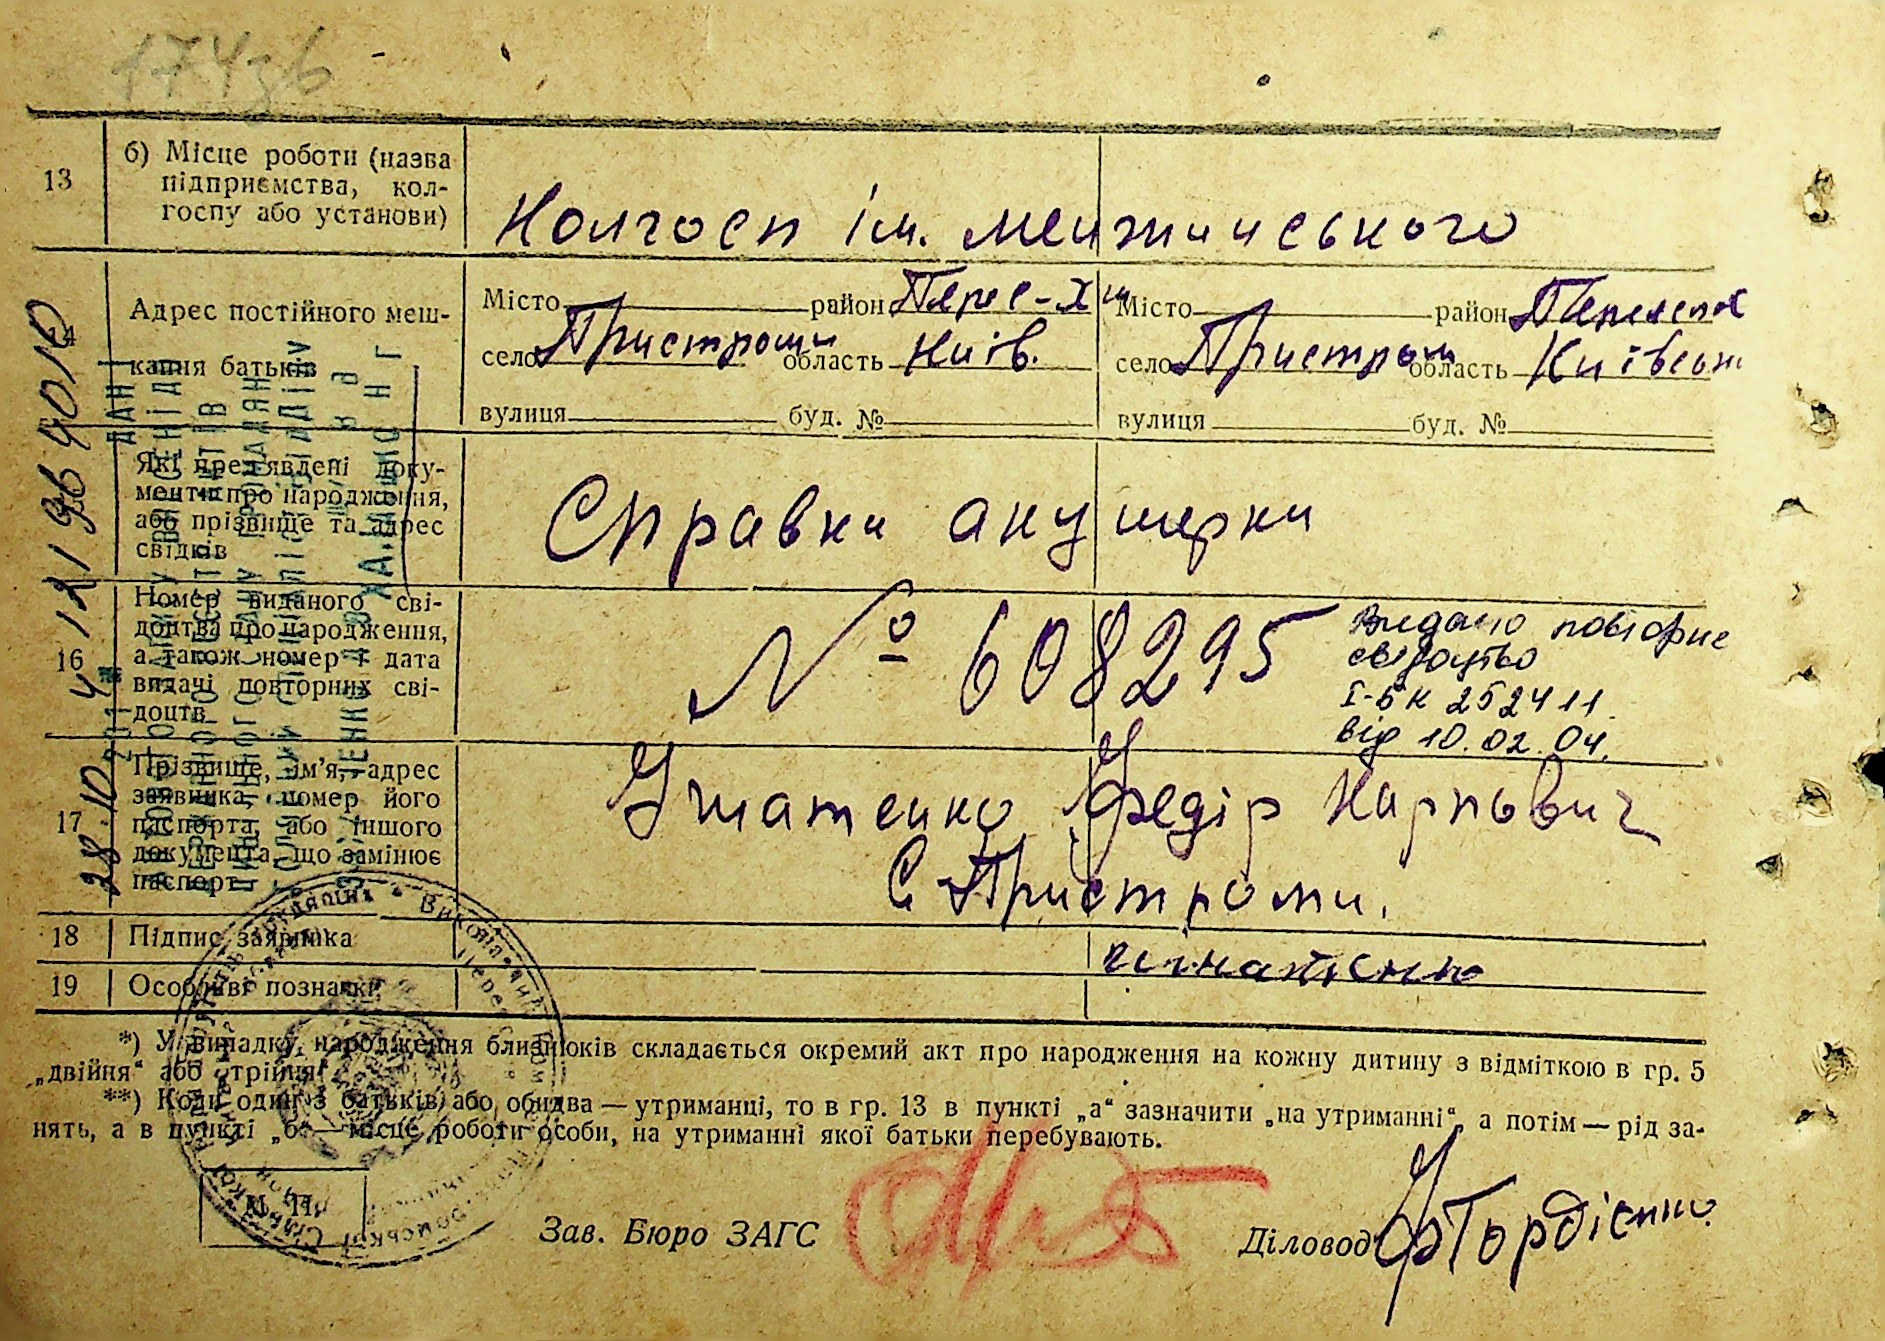 174зв
13
б) Місце роботи (назва
підприємства, кол-
госпу або установи)
Колгосп ім. Менжинського
Адрес постійного меш-
кання батьків
Місто район Пере-Хм
село Пристроми область Київ.
вулиця буд. №
Місто район Переяслх
село Пристром область Київськ
вулиця буд. №
Які пред'явлені доку-
менти про народження,
або прізвище та адрес
свідків
Справки акушерки
16
Номер виданого сві-
доцтва про народження,
а також номер і дата
видачі повторних сві-
доцтв
№ 608295
Видано повторне
свідоцтво
І-БК 252411
від 10.02.04.
17
Прізвище, ім'я, адрес
заявника, номер його
паспорта, або іншого
документа, що замінює
паспорт
Ушатенко Федір Карпович
С Пристроми.
18
Підпис заявника
19
Особливі познаки
*) У випадку народження близнюків складається окремий акт про народження на кожну дитину з відміткою в гр. 5
„двійня“ або „трійня“
**) Коли один з батьків або обидва — утриманці, то в гр. 13 в пункті „а“ зазначити „на утриманні“, а потім — рід за-
нять, а в пункті „б“ — місце роботи особи, на утриманні якої батьки перебувають.
М. П.
Зав. Бюро ЗАГС
Діловод Гордієнко